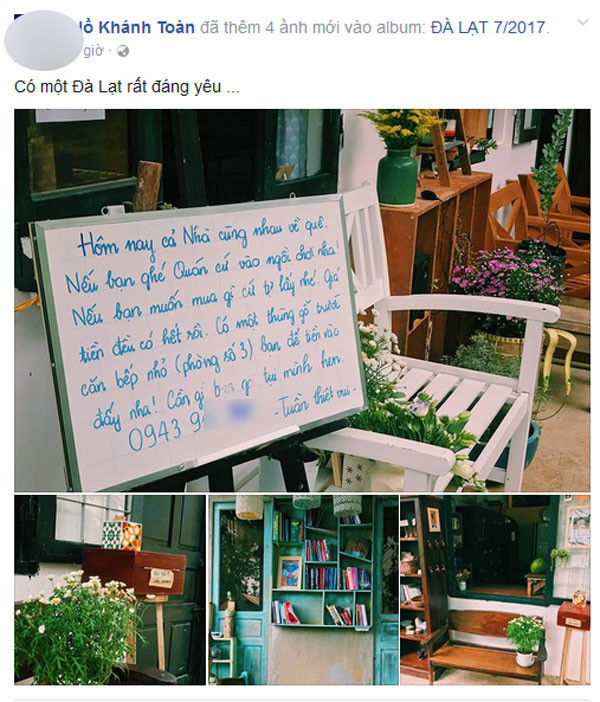 Hồ Khánh Toàn đã thêm 4 ảnh mới vào album: ĐÀ LẠT 7/2017.
giờ ·
Có một Đà Lạt rất đáng yêu ...
Hôm nay cả Nhà cùng nhau về quê.
Nếu bạn ghé Quán cứ vào ngồi chơi nha!
Nếu bạn muốn mua gì cứ tự lấy nhé. Giá
tiền đều có hết rồi. Có một thùng gỗ trước
căn bếp nhỏ (phòng số 3) bạn để tiền vào
đấy nha! Cần gì bạn gọi tụi mình hen.
0943 9
- Tuần thiệt vui -